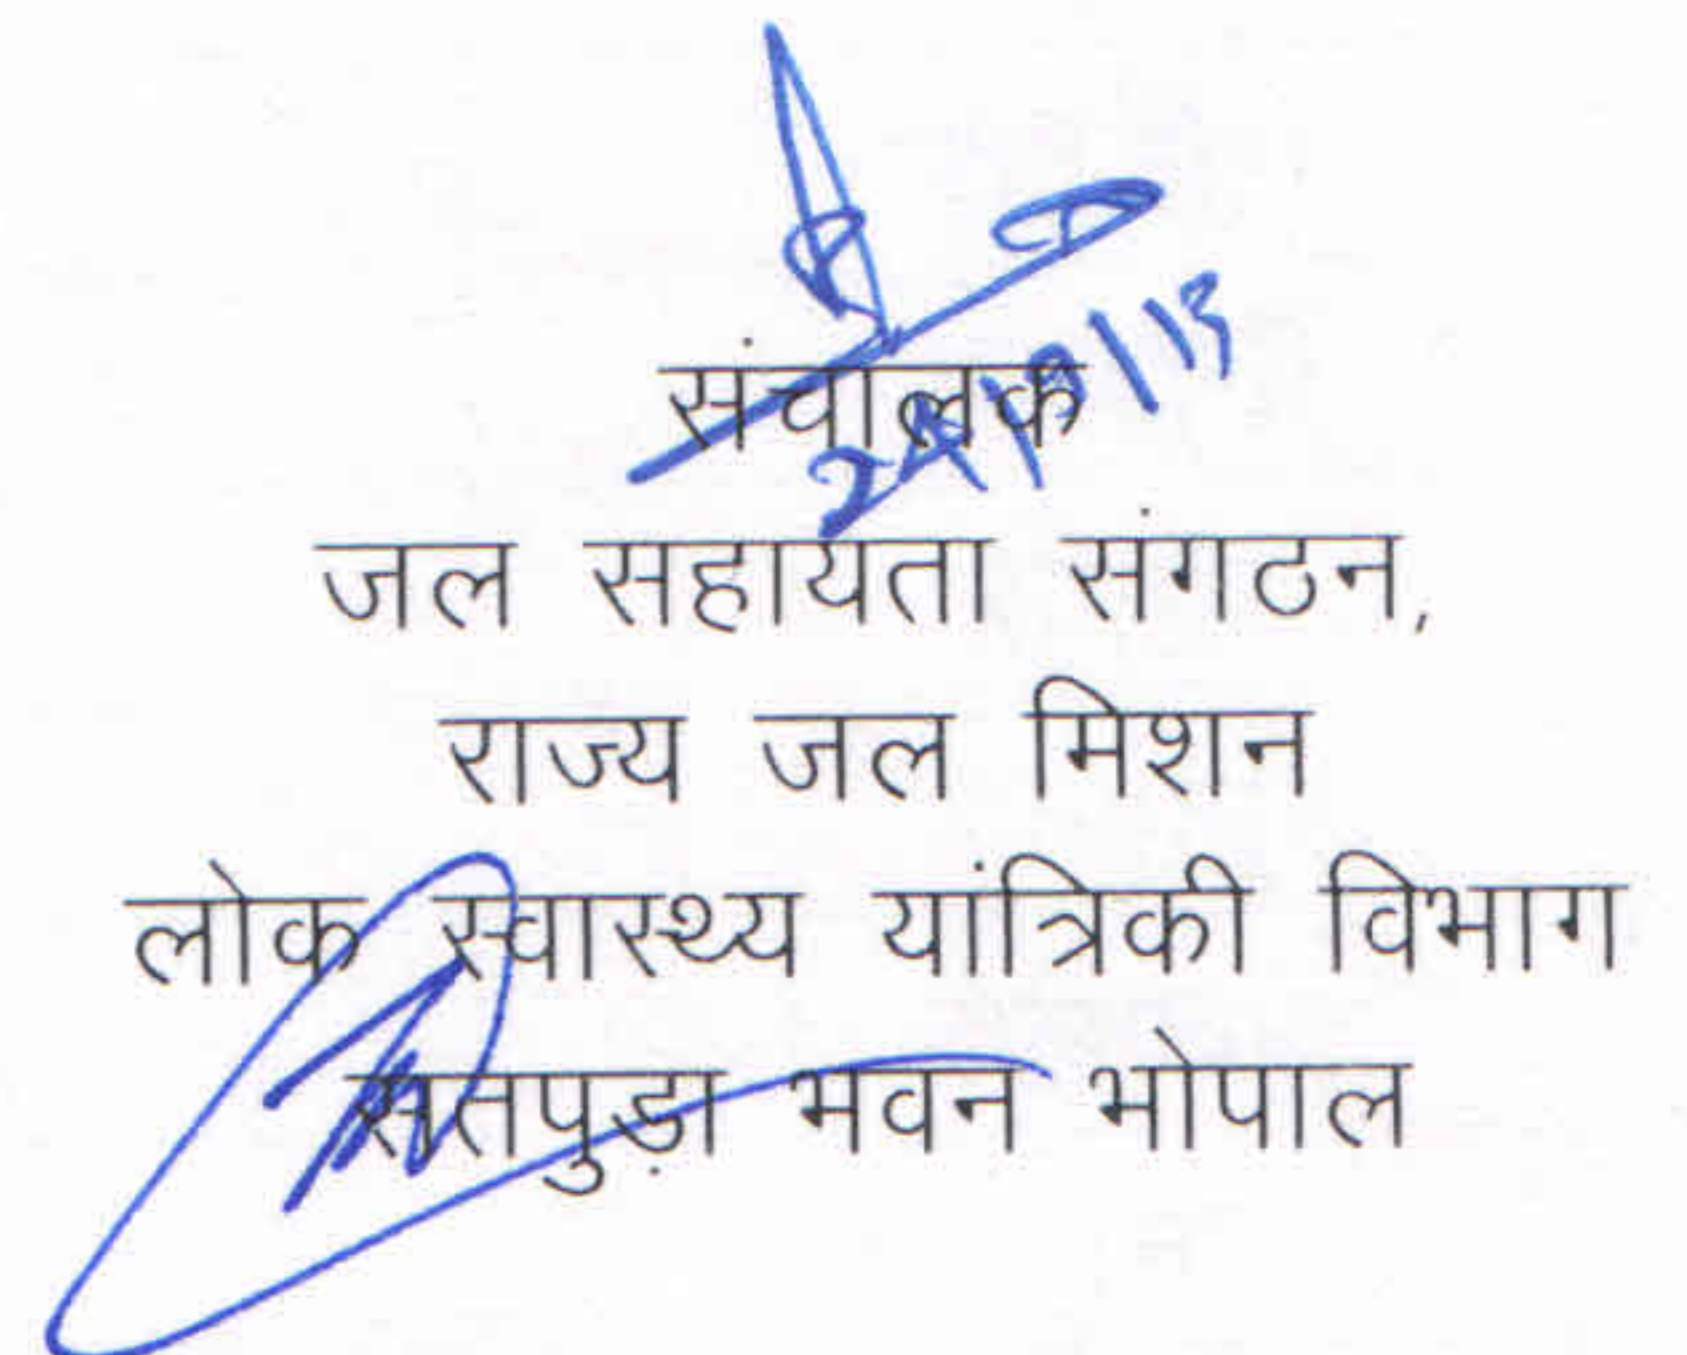 संचालक
जल सहायता संगठन,
राज्य जल मिशन
लोक स्वास्थ्य यांत्रिकी विभाग
सतपुड़ा भवन भोपाल